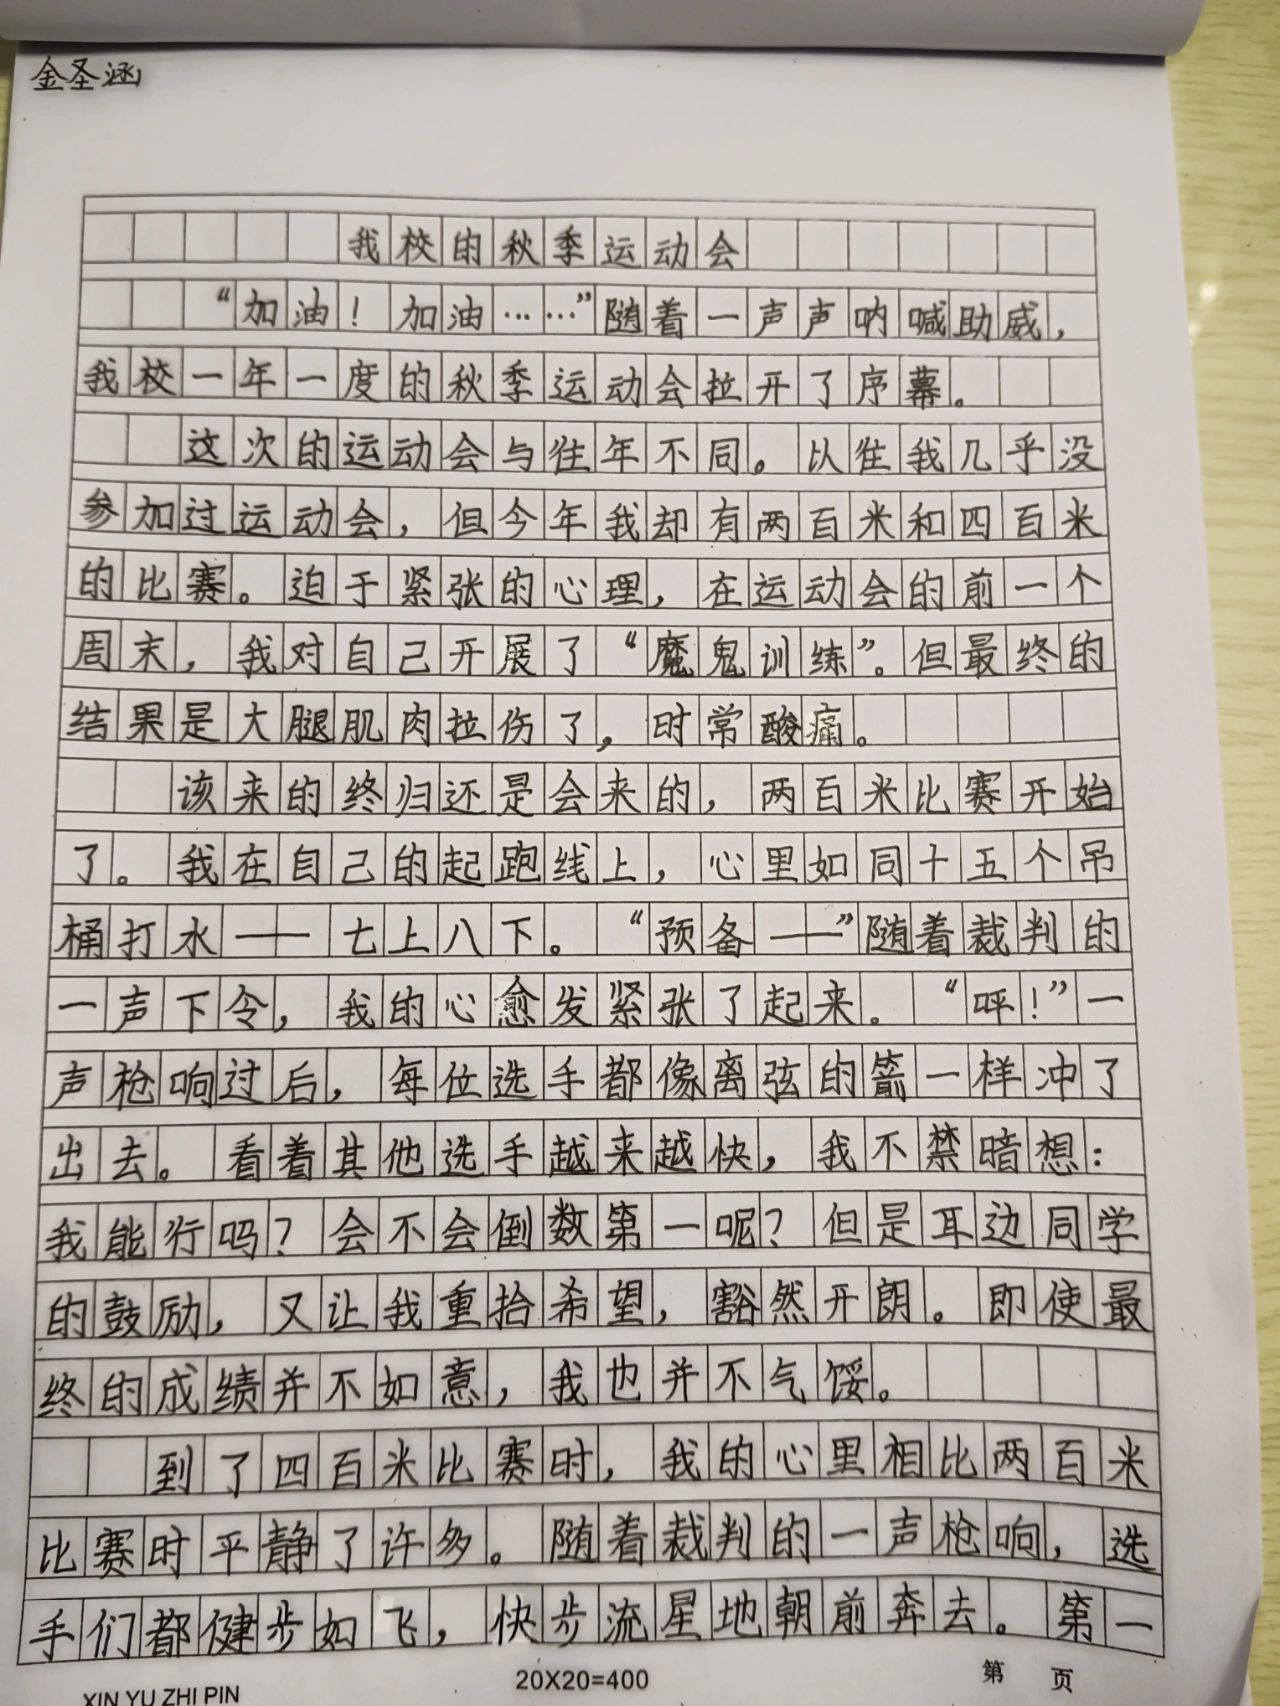 金圣涵
我校的秋季运动会
“加油！加油……”随着一声声呐喊助威，
我校一年一度的秋季运动会拉开了序幕。
这次的运动会与往年不同。以往我几乎没
参加过运动会，但今年我却有两百米和四百米
的比赛。迫于紧张的心理，在运动会的前一个
周末，我对自己开展了“魔鬼训练”。但最终的
结果是大腿肌肉拉伤了，时常酸痛。
该来的终归还是会来的，两百米比赛开始
了。我在自己的起跑线上，心里如同十五个吊
桶打水——七上八下。“预备——”随着裁判的
一声下令，我的心愈发紧张了起来。“呯！”一
声枪响过后，每位选手都像离弦的箭一样冲了
出去。看着其他选手越来越快，我不禁暗想：
我能行吗？会不会倒数第一呢？但是耳边同学
的鼓励，又让我重拾希望，豁然开朗。即使最
终的成绩并不如意，我也并不气馁。
到了四百米比赛时，我的心里相比两百米
比赛时平静了许多。随着裁判的一声枪响，选
手们都健步如飞，快步流星地朝前奔去。第一
XIN YU ZHI PIN
20X20=400
第 页